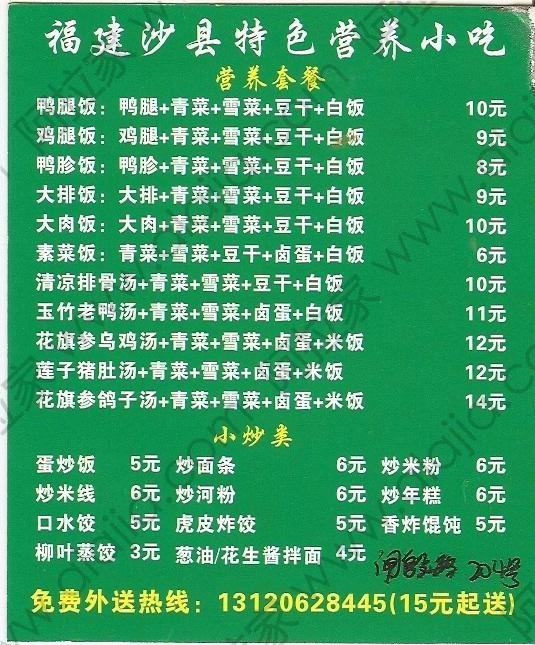 福建沙县特色营养小吃
营养套餐
鸭腿饭：鸭腿+青菜+雪菜+豆干+白饭 10元
鸡腿饭：鸡腿+青菜+雪菜+豆干+白饭 9元
鸭胗饭：鸭胗+青菜+雪菜+豆干+白饭 8元
大排饭：大排+青菜+雪菜+豆干+白饭 9元
大肉饭：大肉+青菜+雪菜+豆干+白饭 10元
素菜饭：青菜+雪菜+豆干+卤蛋+白饭 6元
清凉排骨汤+青菜+雪菜+豆干+白饭 10元
玉竹老鸭汤+青菜+雪菜+卤蛋+白饭 11元
花旗参乌鸡汤+青菜+雪菜+卤蛋+米饭 12元
莲子猪肚汤+青菜+雪菜+卤蛋+米饭 12元
花旗参鸽子汤+青菜+雪菜+卤蛋+米饭 14元
小炒类
蛋炒饭 5元 炒面条 6元 炒米粉 6元
炒米线 6元 炒河粉 6元 炒年糕 6元
口水饺 5元 虎皮炸饺 5元 香炸馄饨 5元
柳叶蒸饺 3元 葱油/花生酱拌面 4元
204号
免费外送热线：13120628445(15元起送)